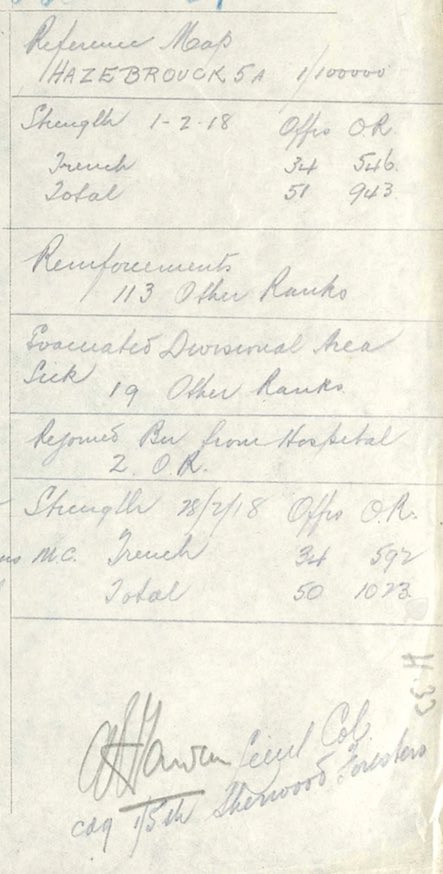 Reference Map
HAZEBROUCK 5A 1/100000
Strength 1-2-18 Offrs O.R.
Trench 34 546.
Total 51 943
Reinforcements
113 Other Ranks
Evacuated Divisional Area
Sick 19 Other Ranks.
Rejoined Bn from Hospital
2. O.R.
Strength 28/2/18 Offrs O.R.
M.C. Trench 34 592
Total 50 1023.
H.33
Lieut Col.
Cdg 1/5th Sherwood Foresters